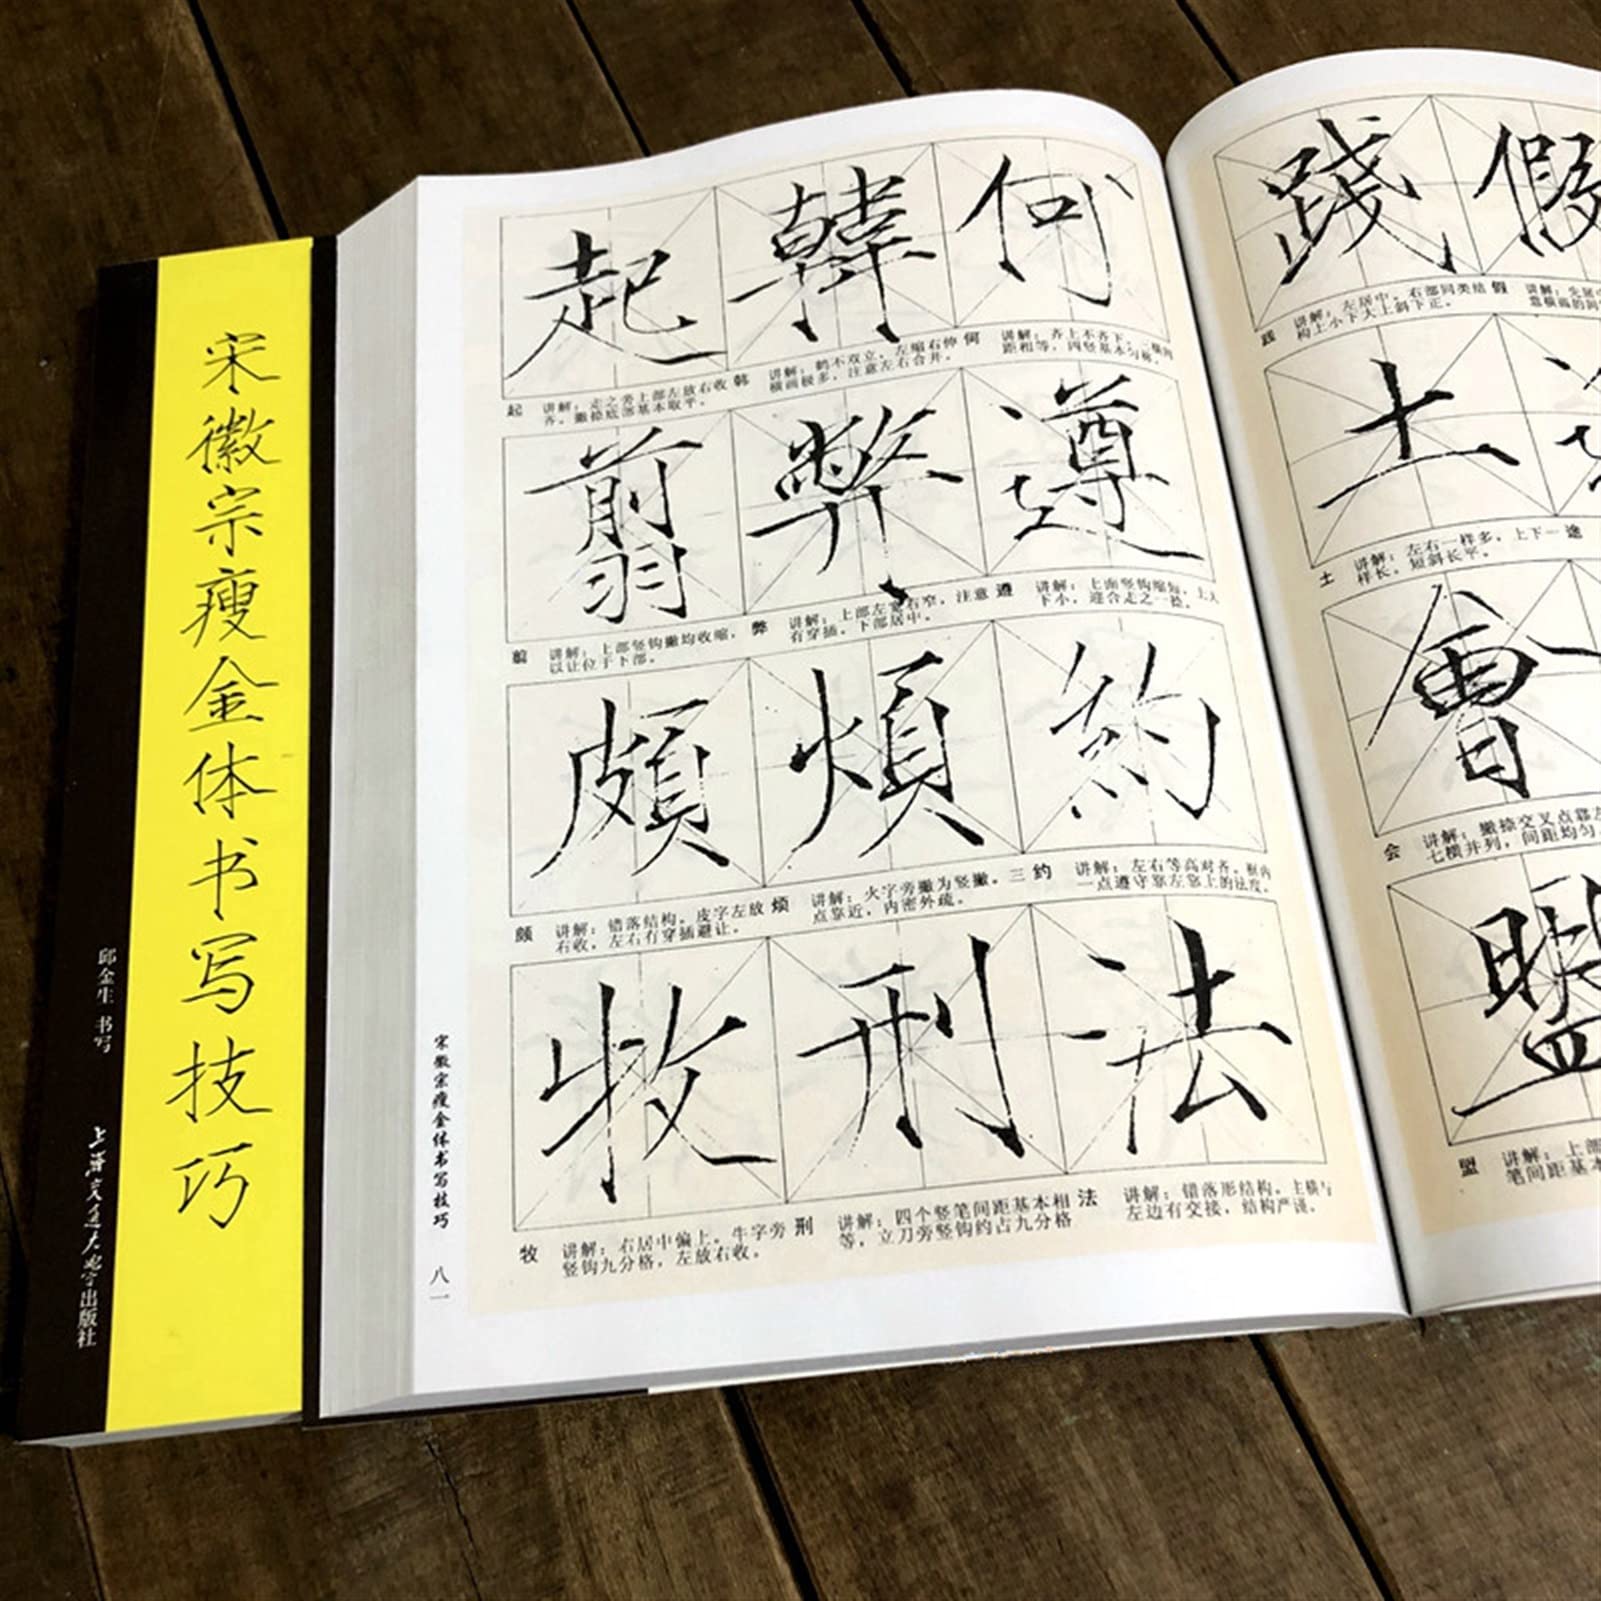 宋徽宗瘦金体书写技巧
邱金生 书写
上海交通大学出版社
宋徽宗瘦金体书写技巧 八一
起 韓 何
起 讲解：走之旁上部左放右收
齐，撇捺底部基本取平。
韩 讲解：鹤不双立，左缩右伸
横画极多，注意左右合并。
何 讲解：齐上不齐下，二横间
距相等，四竖基本匀称。
翦 弊 遵
翦 讲解：上部竖钩撇均收缩，
以让位于下部。
弊 讲解：上部左宽右窄，注意
有穿插。下部居中。
遵 讲解：上面竖钩缩短，上大
下小，迎合走之一捺。
頗 煩 約
颇 讲解：错落结构。皮字左放
右收，左右有穿插避让。
烦 讲解：火字旁撇为竖撇。三
点靠近，内密外疏。
约 讲解：左右等高对齐。框内
一点遵守靠左靠上的法度。
牧 刑 法
牧 讲解：右居中偏上。牛字旁
竖钩九分格，左放右收。
刑 讲解：四个竖笔间距基本相
等，立刀旁竖钩约占九分格
法 讲解：错落形结构。主横与
左边有交接，结构严谨。
踐 假
践 讲解：左居中，右部同类结
构上小下大上斜下正。
假 讲解：先居
意横画的间
土
土 讲解：左右一样多，上下一
样长，短斜长平。
途
會
会 讲解：撇捺交叉点靠左
七横并列，间距均匀
盟
盟 讲解：上部
笔间距基本